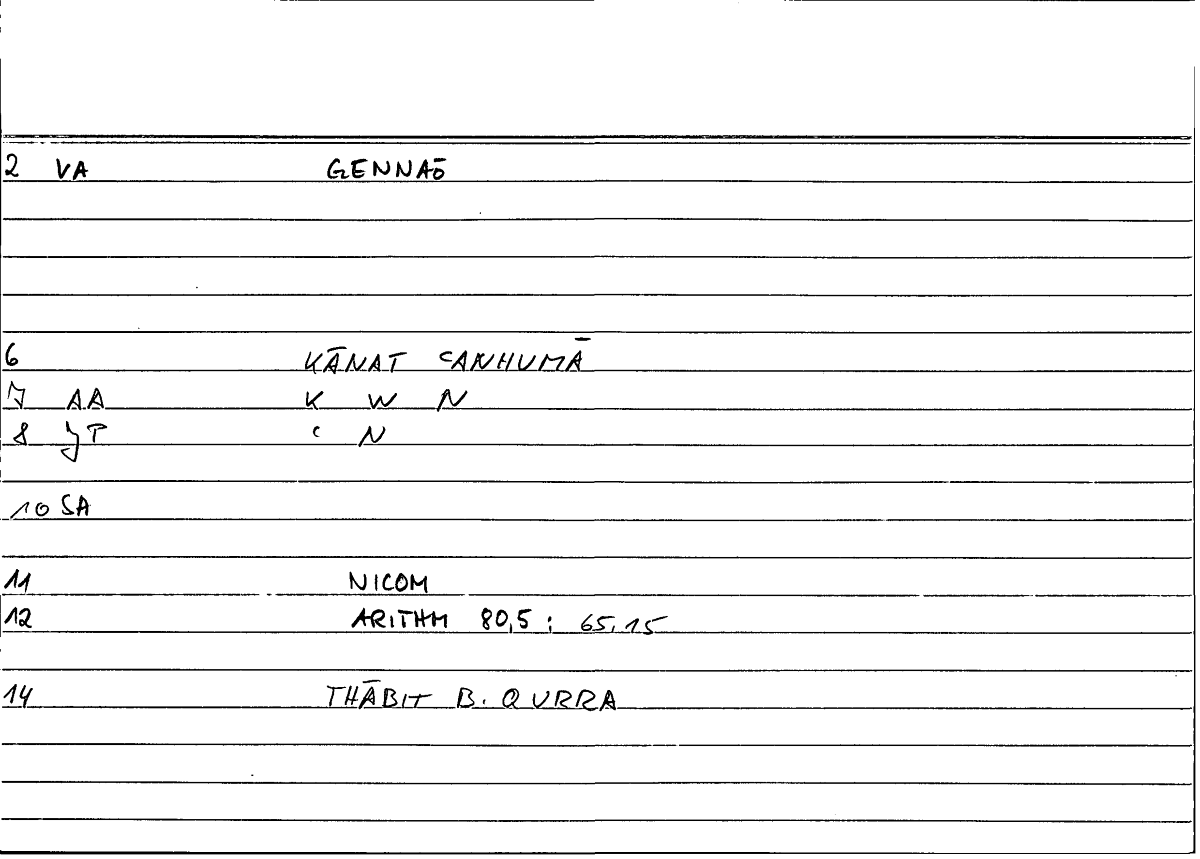 2 VA GENNAŌ
6 KĀNAT ʿANHUMĀ
7 AA K W N
8 JP ʿ N
10 SA
11 NICOM
12 ARITHM 80,5 : 65,15
14 THĀBIT B. QURRA